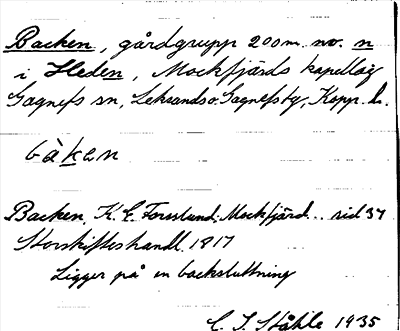 Backen, gårdgrupp 200 m. nv. n
i Heden, Mockfjärds kapellag
Gagnefs sn, Leksands o. Gagnefs tg, Kopp. l.
bàken
Backen, K. E. Forsslund: Mockfjärd.. sid 37
Storskifteshandl. 1817
Ligger på en backsluttning
C. I. Ståhle 1935